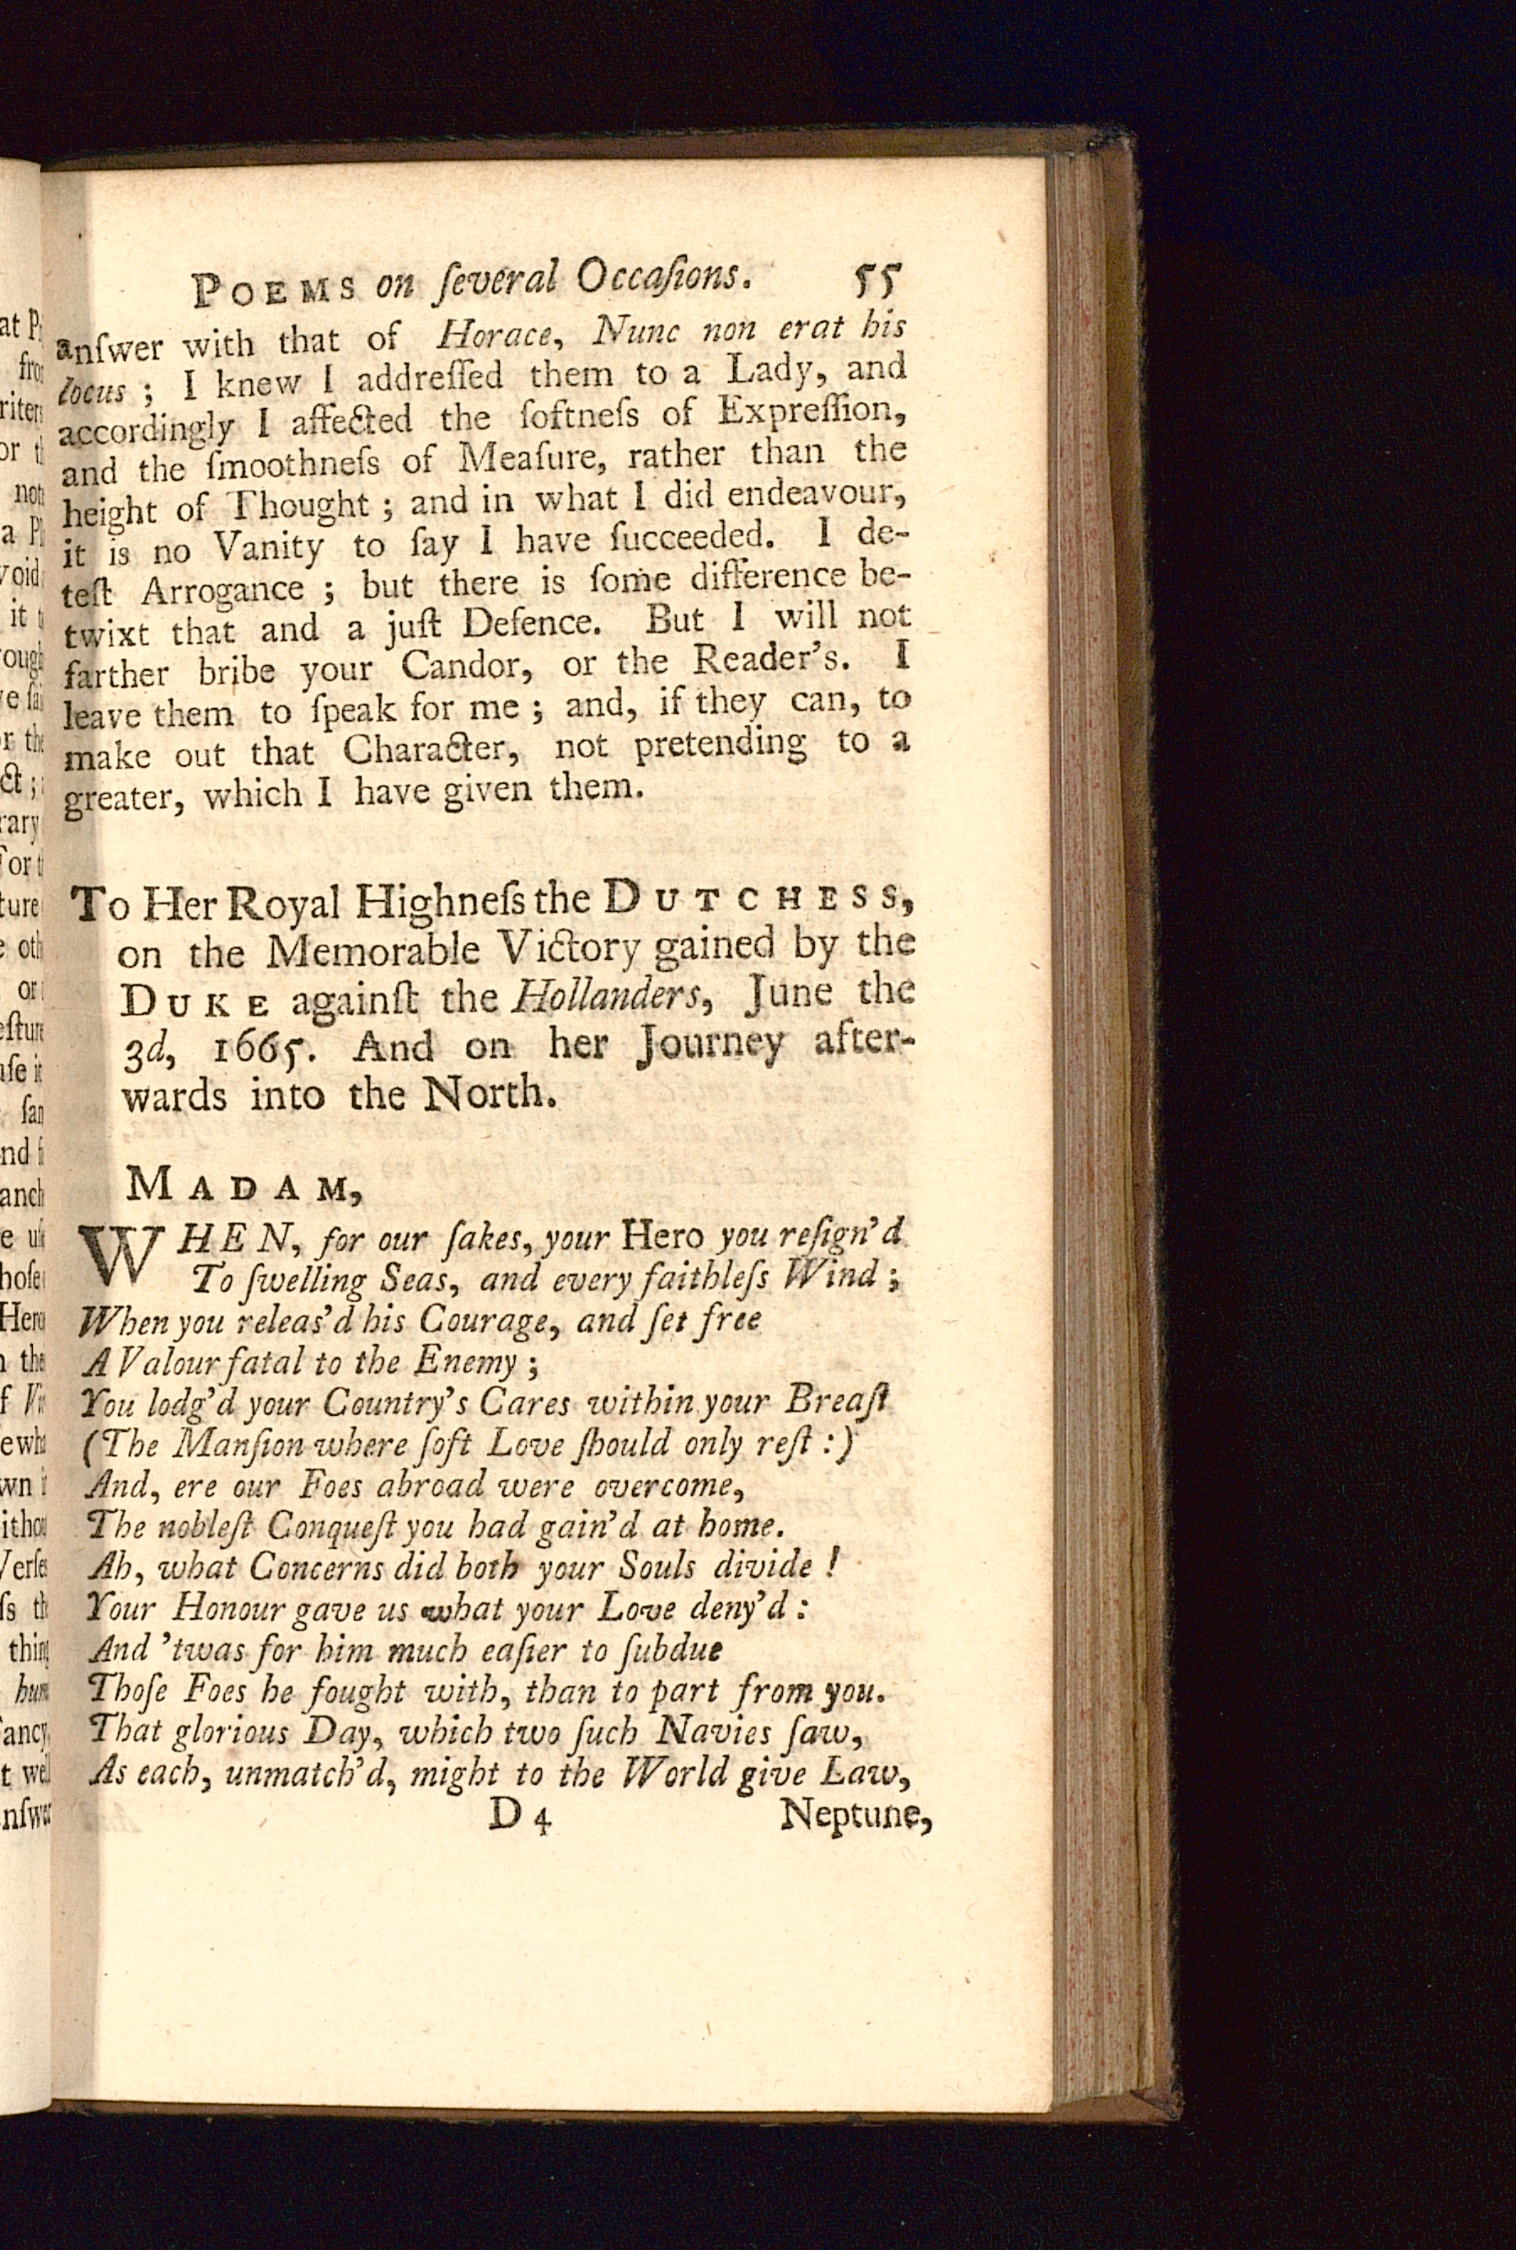 POEMS on ſeveral Occaſions. 55
anſwer with that of Horace, Nunc non erat his
locus ; I knew I addreſſed them to a Lady, and
accordingly I affected the ſoftneſs of Expreſſion,
and the ſmoothneſs of Meaſure, rather than the
height of Thought ; and in what I did endeavour,
it is no Vanity to ſay I have ſucceeded. I de-
teſt Arrogance ; but there is ſome difference be-
twixt that and a juſt Defence. But I will not
farther bribe your Candor, or the Reader's. I
leave them to ſpeak for me ; and, if they can, to
make out that Character, not pretending to a
greater, which I have given them.
To Her Royal Highneſs the DUTCHESS,
on the Memorable Victory gained by the
DUKE againſt the Hollanders, June the
3d, 1665. And on her Journey after-
wards into the North.
MADAM,
WHEN, for our ſakes, your Hero you reſign'd
To ſwelling Seas, and every faithleſs Wind ;
When you releas'd his Courage, and ſet free
A Valour fatal to the Enemy ;
You lodg'd your Country's Cares within your Breaſt
(The Manſion where ſoft Love ſhould only reſt :)
And, ere our Foes abroad were overcome,
The nobleſt Conqueſt you had gain'd at home.
Ah, what Concerns did both your Souls divide !
Your Honour gave us what your Love deny'd :
And 'twas for him much eaſier to ſubdue
Thoſe Foes he fought with, than to part from you.
That glorious Day, which two ſuch Navies ſaw,
As each, unmatch'd, might to the World give Law,
D 4 Neptune,